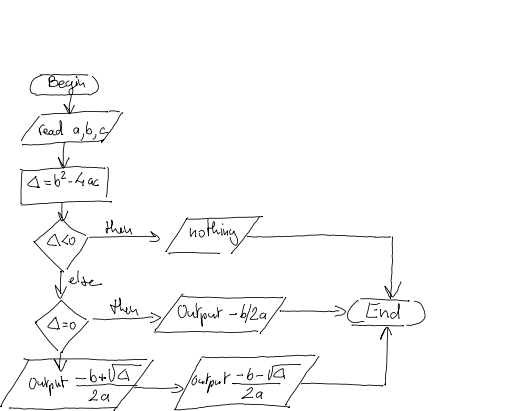 Begin
read a,b,c
Δ=b²-4ac
Δ<0
then
nothing
else
Δ=0
then
Output -b/2a
End
Output (-b+√Δ)/2a
Output (-b-√Δ)/2a